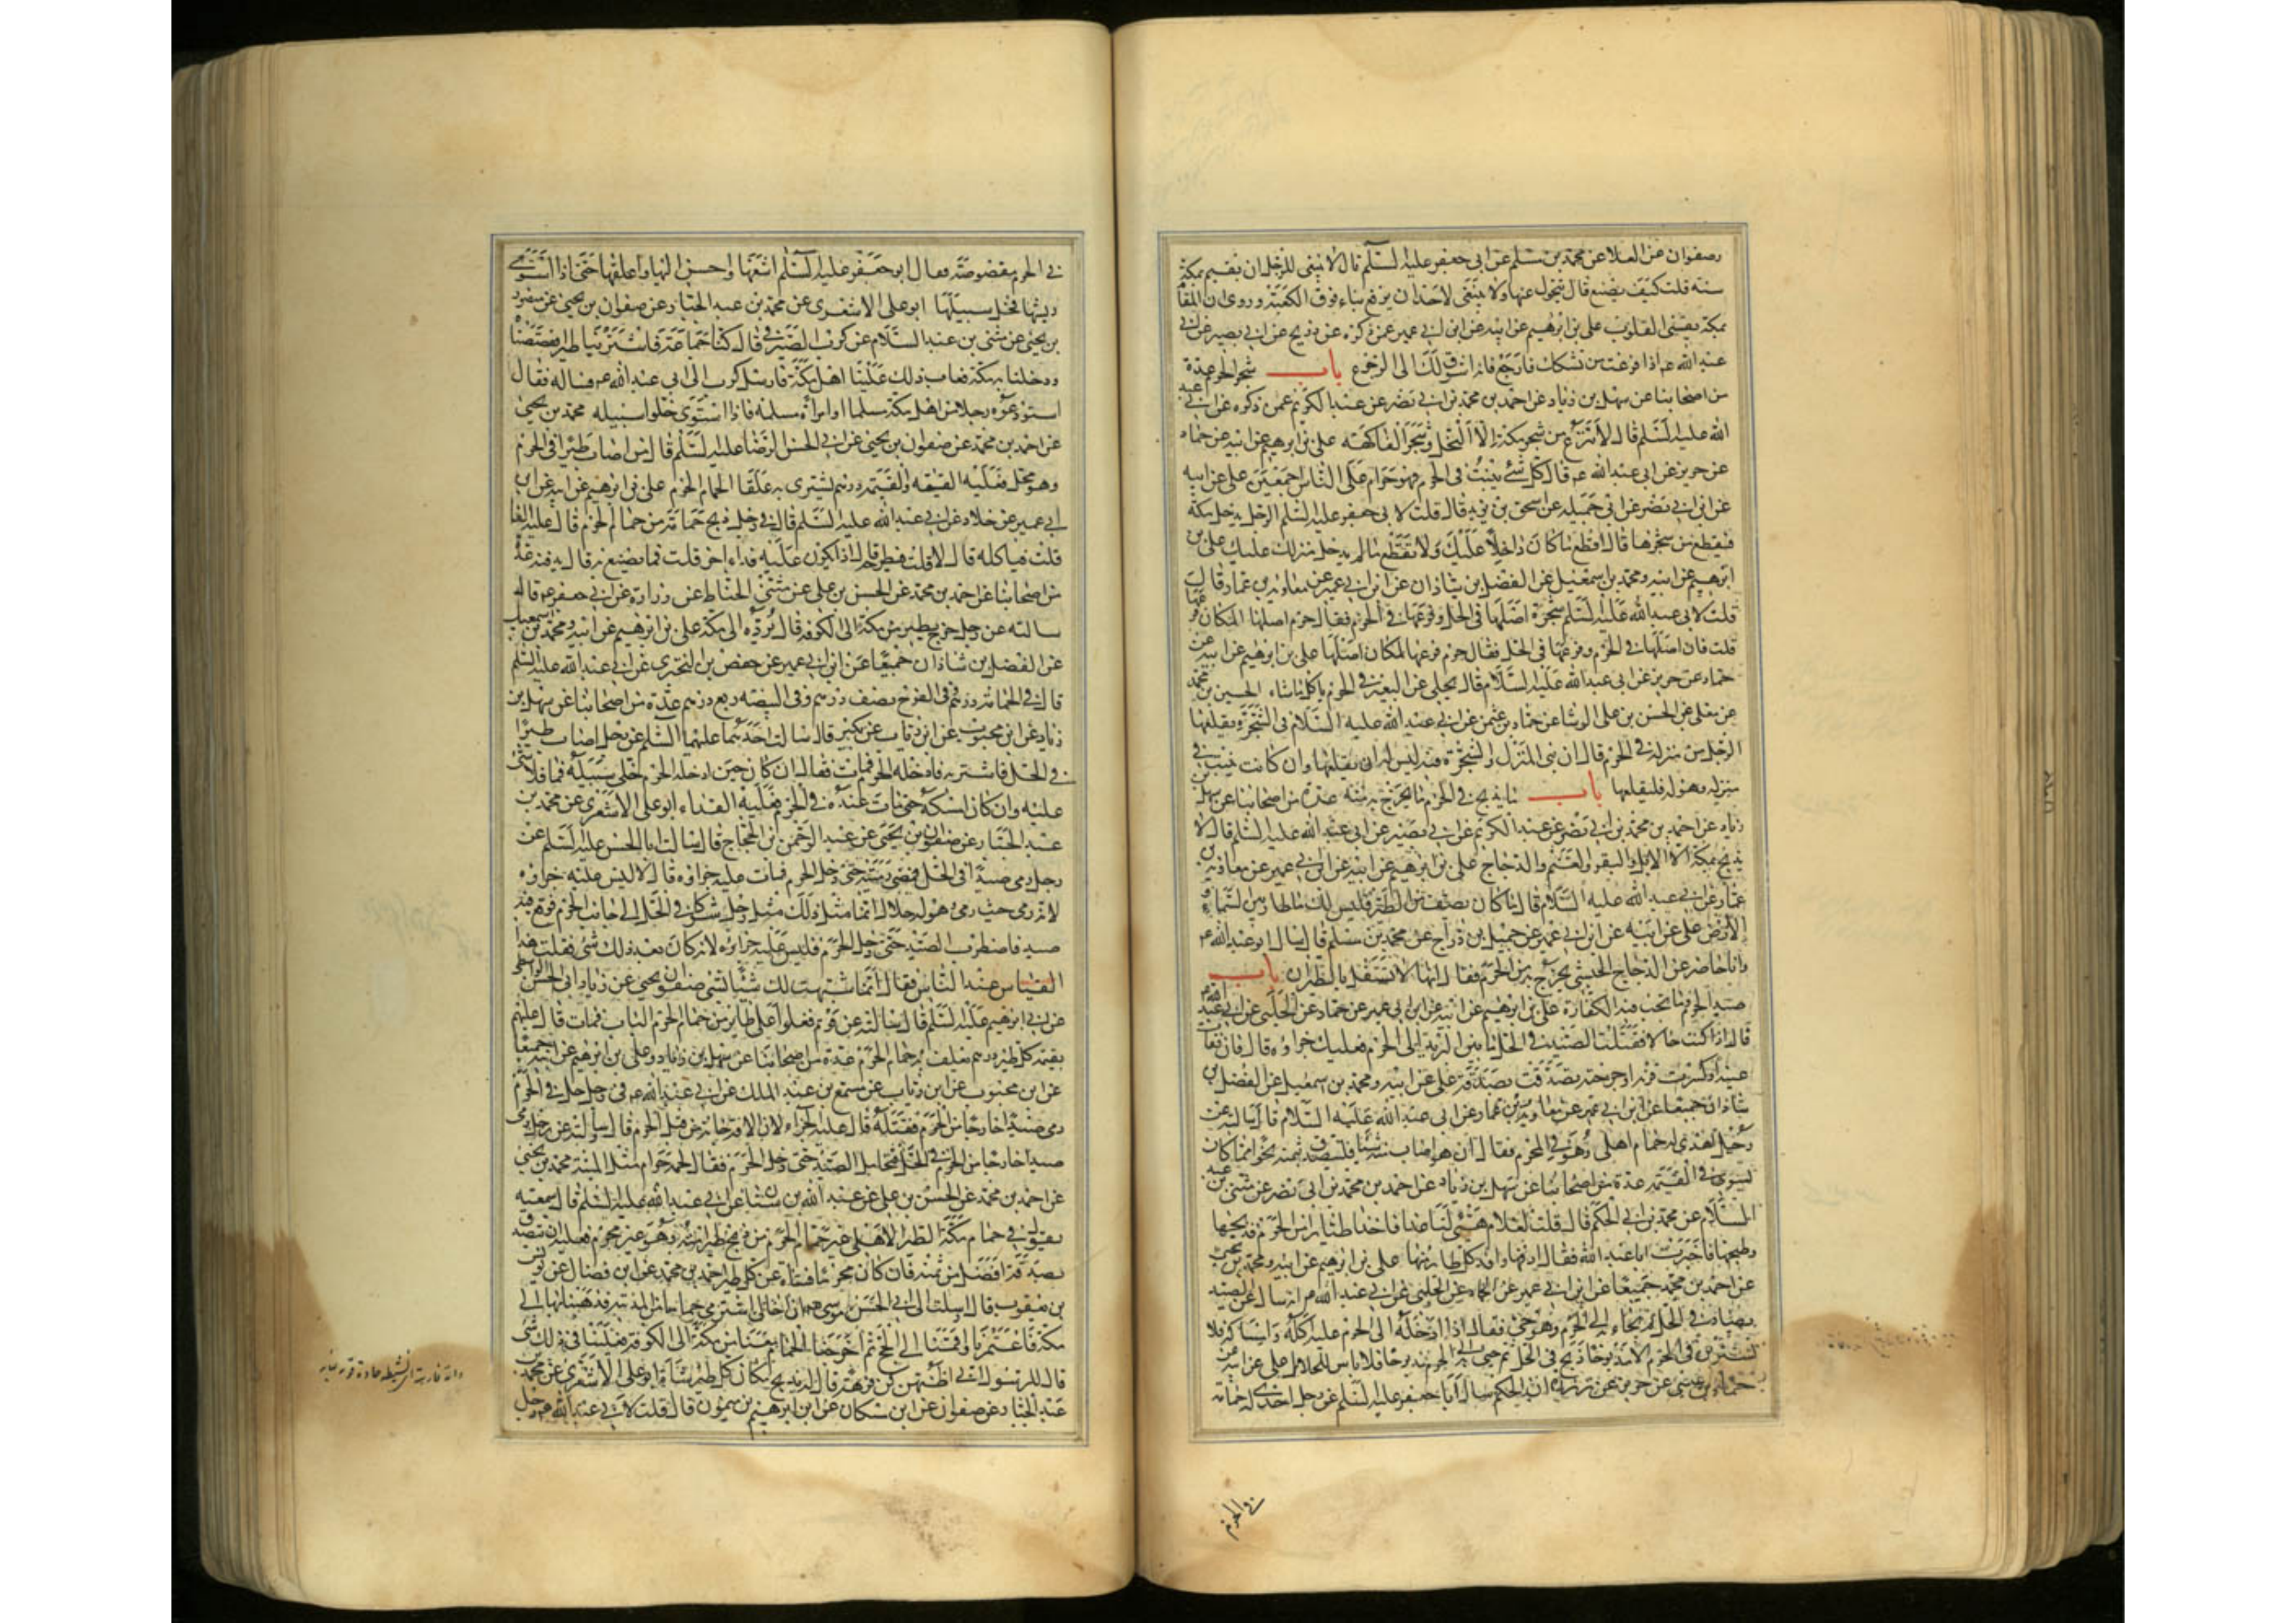 وصفوان عن العلا عن محمد بن مسلم عن ابى جعفر عليه السلم قال لا ينبغى للرجل ان يقيم بمكة
سنة قلت كيف يصنع قال يتحول عنها ولا ينبغى لاحد ان يرفع بناء فوق الكعبة وروى ان المقام
بمكة يقسى القلوب على بن ابرهيم عن ابيه عن ابن ابى عمير عمن ذكره عن ذريح عن ابى بصير عن ابى
عبد الله عم اذا فرغت من نسكك فارجع فانه اشوق لك الى الرجوع باب شجر الحرم عدة
من اصحابنا عن سهل بن زياد عن احمد بن محمد بن ابى نصر عن عبد الكريم عمن ذكره عن ابى عبد
الله عليه السلم قال لا ينزع من شجر مكة الا النخل وشجر الفاكهة على بن ابرهيم عن ابيه عن حماد
عن حريز عن ابى عبد الله عم قال كل شئ ينبت فى الحرم فهو حرام على الناس اجمعين على عن ابيه
عن ابن ابى نصر عن ابى جميله عن اسحق بن يزيد قال قلت لابى جعفر عليه السلم الرجل يدخل مكة
فيقطع من شجرها قال اقطع ما كان داخلا عليك ولا تقطع ما لم يدخل منزلك عليك على بن
ابرهيم عن ابيه ومحمد بن اسمعيل عن الفضل بن شاذان عن ابن ابى عمير عن معاوية بن عمار قال
قلت لابى عبد الله عليه السلم شجرة اصلها فى الحل وفرعها فى الحرم فقال حرم اصلها لمكان فرعها
قلت فان اصلها فى الحرم وفرعها فى الحل فقال حرم فرعها لمكان اصلها على بن ابرهيم عن ابيه عن
حماد عن حريز عن ابى عبد الله عليه السلام قال يخلى عن البعير فى الحرم ياكل ما شاء الحسين بن محمد
عن معلى عن الحسن بن على الوشا عن حماد بن عثمن عن ابى عبد الله عليه السلام فى الشجرة يقلعها
الرجل من منزله فى الحرم قال ان بنى المنزل والشجرة فيه ليس له ان يقلعها وان كانت نبتت فى
منزله وهو له فليقلعها باب ما يذبح فى الحرم وما يخرج به منه عدة من اصحابنا عن سهل بن
زياد عن احمد بن محمد بن ابى نصر عن عبد الكريم عن ابى بصير عن ابى عبد الله عليه السلم قال لا
يذبح بمكة الا الابل والبقر والغنم والدجاج على بن ابرهيم عن ابيه عن ابن ابى عمير عن معاوية بن
عمار عن ابى عبد الله عليه السلام قال ما كان يصف من الطير فليس لك ما طار بين السماء و
الارض على عن ابيه عن ابن ابى عمير عن جميل بن دراج عن محمد بن مسلم قال سال ابو عبد الله عم
وانا حاضر عن الدجاج الحبشى يخرج من الحرم فقال انها لا تستقل بالطيران باب
صيد الحرم وما تجب فيه الكفارة على بن ابرهيم عن ابيه عن ابن ابى عمير عن حماد عن الحلبى عن ابى عبد الله عم
قال اذا كنت حلالا فقتلت الصيد فى الحل ما بين البريد الى الحرم فعليك جزاؤه قال فان فقأت
عينه او كسرت قرنه او جرحته تصدقت بصدقة على عن ابيه ومحمد بن اسمعيل عن الفضل بن
شاذان جميعا عن ابن ابى عمير عن معاوية بن عمار عن ابى عبد الله عليه السلام قال سالته عن
رجل اهدى له حمام اهلى وهو فى الحرم فقال ان هو اصاب منه شيئا فليتصدق بثمنه نحوا مما كان
يسوى فى القيمة عدة من اصحابنا عن سهل بن زياد عن احمد بن محمد بن ابى نصر عن مثنى بن عبد
السلام عن محمد بن ابى الحكم قال قلت لغلام هيئ لنا غدانا فاخذ اطيارا من الحرم فذبحها
وطبخها فاخبرت ابا عبد الله فقال ادفنها وافد كل طائر منها على بن ابرهيم عن ابيه ومحمد بن يحيى
عن احمد بن محمد جميعا عن ابن ابى عمير عن حماد عن الحلبى عن ابى عبد الله عم انه سال عن الصيد
يصاد فى الحل ثم يجاء به الى الحرم وهو حى فقال اذا ادخله الى الحرم حرم عليه اكله وامساكه فلا
تشترين فى الحرم الا مذبوحا ذبح فى الحل ثم جئ به الى الحرم مذبوحا فلا باس للحلال على عن ابيه عن
حماد بن عيسى عن حريز عن زرارة ان الحكم سال ابا جعفر عليه السلم عن رجل اهدى له حمامة
فى الحرم
فى الحرم مقصوصة فقال ابو جعفر عليه السلم انتفها واحسن اليها واعلفها حتى اذا استوى
ريشها فخل سبيلها ابو على الاشعرى عن محمد بن عبد الجبار عن صفوان بن يحيى عن صفوان
بن يحيى عن مثنى بن عبد السلام عن كرب الصيرفى قال كنا جماعة فاشترينا طيرا فقصصناه
ودخلنا به مكة فعاب ذلك علينا اهل مكة فارسل كرب الى ابى عبد الله عم فساله فقال
استودعوه رجلا من اهل مكة مسلما او امراة مسلمة فاذا استوى خلوا سبيله محمد بن يحيى
عن احمد بن محمد عن صفوان بن يحيى عن ابى الحسن الرضا عليه السلم قال من اصاب طيرا فى الحرم
وهو محل فعليه القيمة والقيمة درهم يشترى به علفا لحمام الحرم على بن ابرهيم عن ابيه عن ابن
ابى عمير عن خلاد عن ابى عبد الله عليه السلم قال فى رجل ذبح حمامة من حمام الحرم قال عليه الفدا
قلت فياكله قال لا قلت فيطرحه قال اذا يكون عليه فداء اخر قلت فما يصنع به قال يدفنه عدة
من اصحابنا عن احمد بن محمد عن الحسن بن على عن مثنى الحناط عن زرارة عن ابى جعفر عم قال
سالته عن رجل خرج بطير من مكة الى الكوفه قال يرده الى مكة على بن ابرهيم عن ابيه ومحمد بن اسمعيل
عن الفضل بن شاذان جميعا عن ابن ابى عمير عن حفص بن البخترى عن ابى عبد الله عليه السلم
قال فى الحمامة درهم وفى الفرخ نصف درهم وفى البيضه ربع درهم عدة من اصحابنا عن سهل بن
زياد عن ابن محبوب عن ابن رئاب عن بكير قال سالت احدهما عليهما السلم عن رجل اصاب طيرا
فى الحل فاشتراه فادخله الحرم فمات فقال ان كان حين ادخله الحرم خلى سبيله فمات فلا شئ
عليه وان كان امسكه حتى مات عنده فى الحرم فعليه الفداء ابو على الاشعرى عن محمد بن
عبد الجبار عن صفوان بن يحيى عن عبد الرحمن بن الحجاج قال سالت ابا الحسن عليه السلم عن
رجل رمى صيدا فى الحل فمضى برميته حتى دخل الحرم فمات عليه جزاؤه قال لا ليس عليه جزاؤه
لانه رمى حيث رمى وهو له حلال انما مثل ذلك مثل رجل نصب شركا فى الحل الى جانب الحرم فوقع فيه
صيد فاضطرب الصيد حتى دخل الحرم فليس عليه جزاؤه لانه كان بعد ذلك شئ فقلت هذا
القياس عند الناس فقال انما شبهت لك شيئا بشئ صفوان بن يحيى عن زياد ابى الحسن الواسطى
عن ابى ابرهيم عليه السلم قال سالته عن قوم قفلوا على طاير من حمام الحرم الباب فمات قال عليهم
بقيمة كل طير درهم يعلف به حمام الحرم عدة من اصحابنا عن سهل بن زياد وعلى بن ابرهيم عن ابيه جميعا
عن ابن محبوب عن ابن رئاب عن مسمع بن عبد الملك عن ابى عبد الله عم فى رجل حل فى الحرم
رمى صيدا خارجا من الحرم فقتله قال عليه الجزاء لان الافة جائته من قبل الحرم قال وسالته عن رجل رمى
صيدا خارجا من الحرم فى الحل فتحامل الصيد حتى دخل الحرم فقال لحمه حرام مثل الميتة محمد بن يحيى
عن احمد بن محمد عن الحسن بن على عن عبد الله بن سنان عن ابى عبد الله عليه السلم قال سمعته
يقول فى حمام مكة الطير الاهلى غير حمام الحرم من ذبح طيرا منه وهو غير محرم فعليه ان يتصدق
بصدقة افضل من ثمنه فان كان محرما فشاة عن كل طير احمد بن محمد عن ابن فضال عن يونس
بن يعقوب قال ارسلت الى ابى الحسن موسى عم ان اخا لى اشترى حماما من المدينة فذهبنا بها الى
مكة فاعتمرنا واقمنا الى الحج ثم اخرجنا الحمام معنا من مكة الى الكوفة فعلينا فى ذلك شئ
قال للرسول انى اظنهن كن فرهة قال له يذبح مكان كل طير شاة ابو على الاشعرى عن محمد بن
عبد الجبار عن صفوان عن ابن مسكان عن ابرهيم بن ميمون قال قلت لابى عبد الله عم رجل